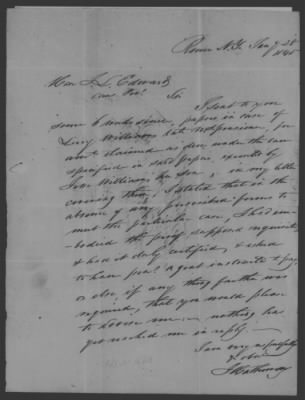 Rome N.Y. Jany 28
1845
Hon J. L. Edwards
Com Pen. Sir
I sent to you
some 6 weeks since, papers in case of
Lucy Williams late
and claimed as due under the
specified in said papers, executed by
John Williams, her Son, in my letter
covering them, I stated that in the
absence of any prescribed forms to
meet the particular case, I had em-
bodied the proof supposed requisite
& had it duly certified, & asked
to have your Agent instructed to pay
or else if any thing further was
required, that you would please
to advise me — nothing has
yet reached me in reply.
I am very respectfully
& obt
J Hathaway